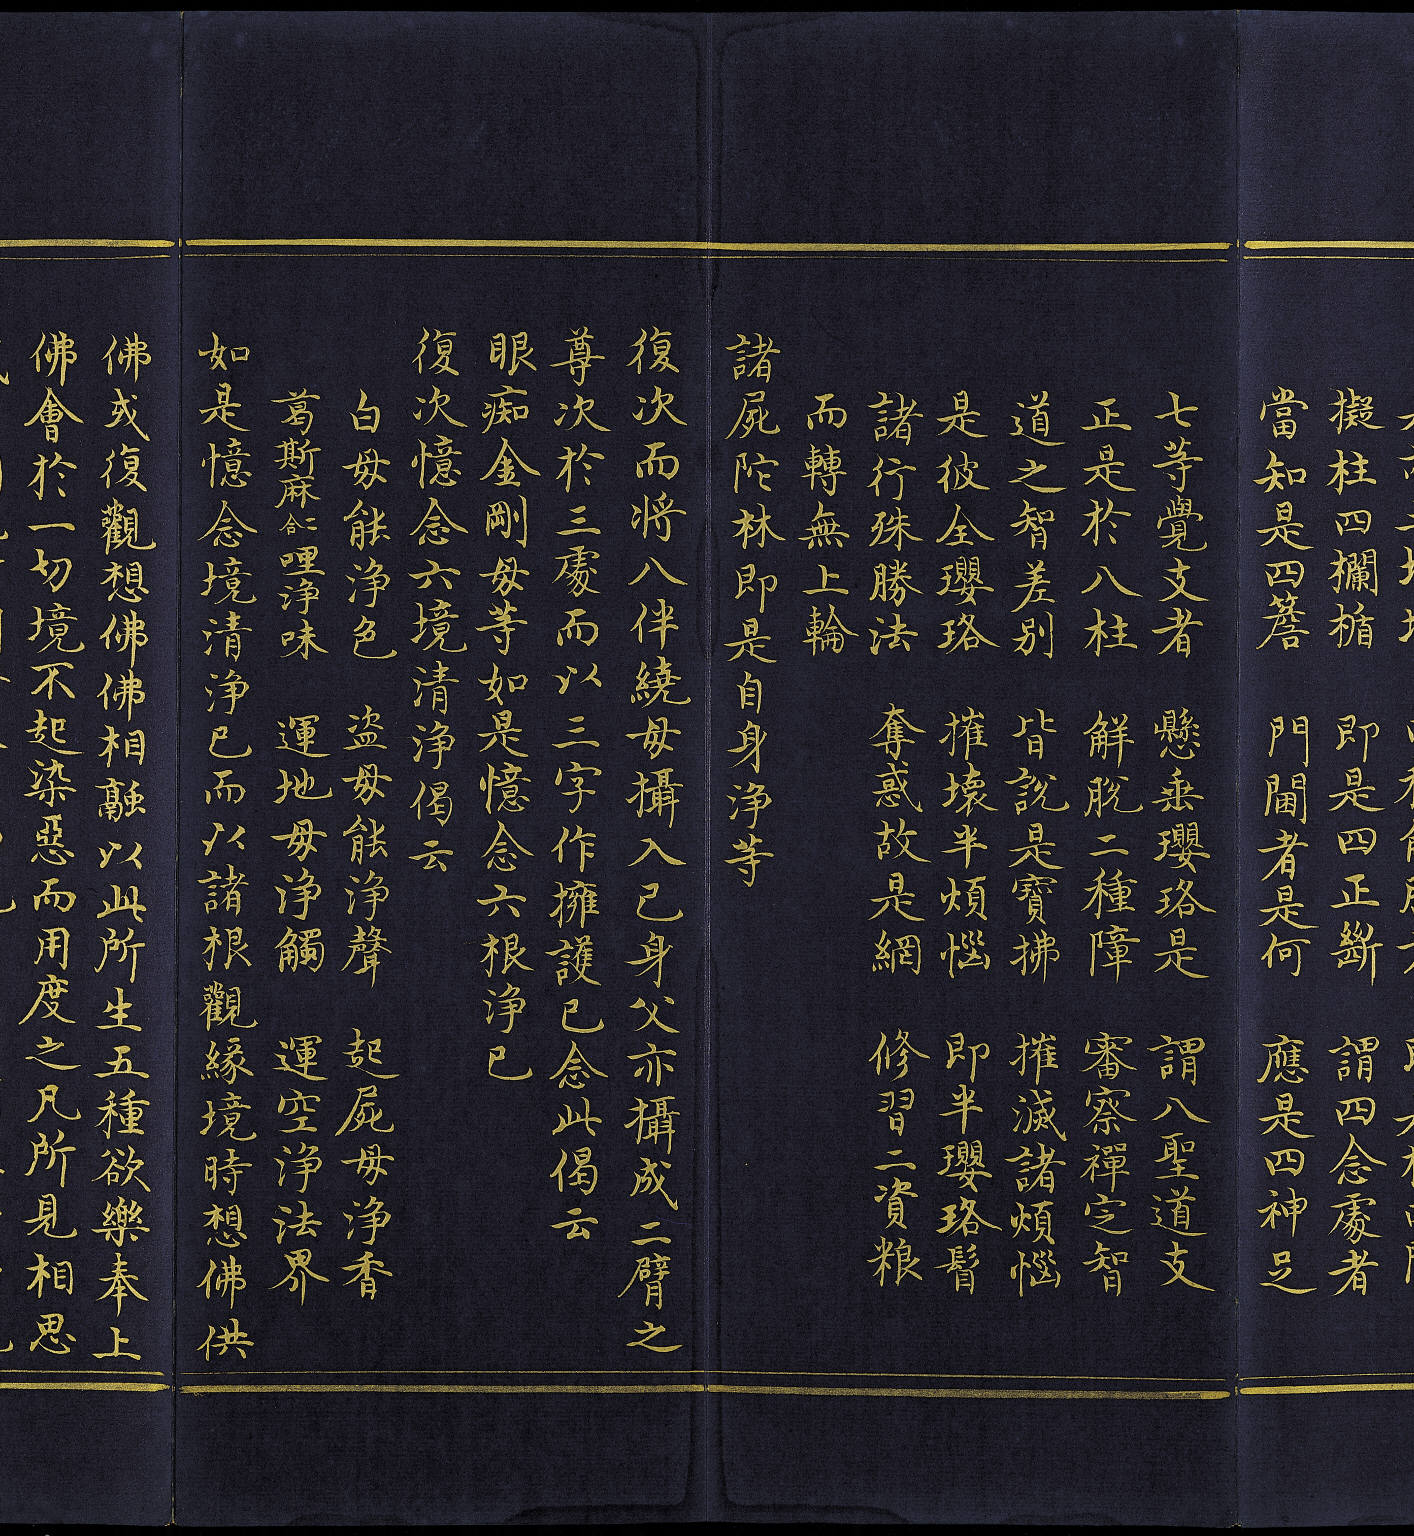 擬柱四欄楯　即是四正斷　謂四念處者
當知是四簷　門閫者是何　應是四神足
七等覺支者　懸垂瓔珞是　謂八聖道支
正是於八柱　解脫二種障　審察禪定智
道之智差别　皆說是寶拂　摧滅諸煩惱
是彼全瓔珞　摧壞半煩惱　即半瓔珞鬘
諸行殊勝法　奪惑故是網　修習二資粮
而轉無上輪
諸屍陀林即是自身淨等
復次而將八伴繞母攝入已身父亦攝成二臂之
尊次於三處而以三字作擁護已念此偈云
眼痴金剛母等如是憶念六根淨已
復次憶念六境清淨偈云
白母能淨色　盗母能淨聲　起屍母淨香
葛斯麻二合哩淨味　運地母淨觸　運空淨法界
如是憶念境清淨已而以諸根觀緣境時想佛供
佛或復觀想佛佛相融以此所生五種欲樂奉上
佛會於一切境不起染惡而用度之凡所見相思